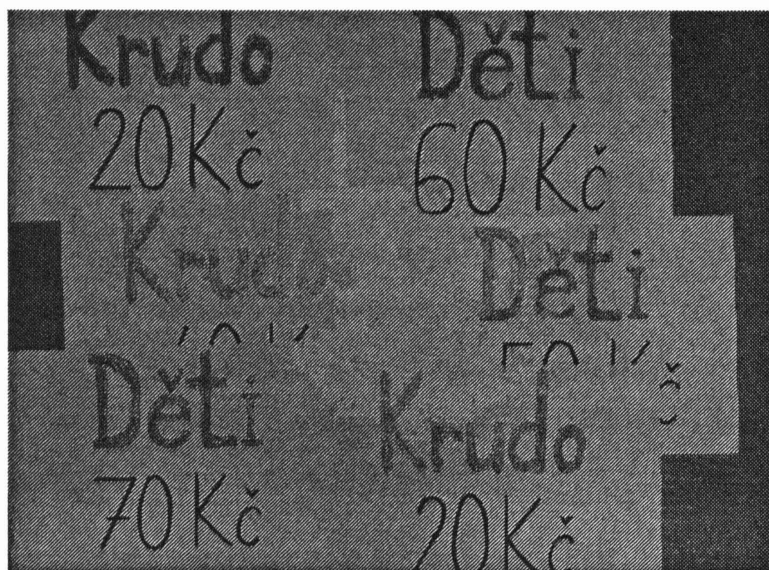 Krudo
20 Kč
Děti
60 Kč
Krudo
Děti
Děti
70 Kč
Krudo
20 Kč